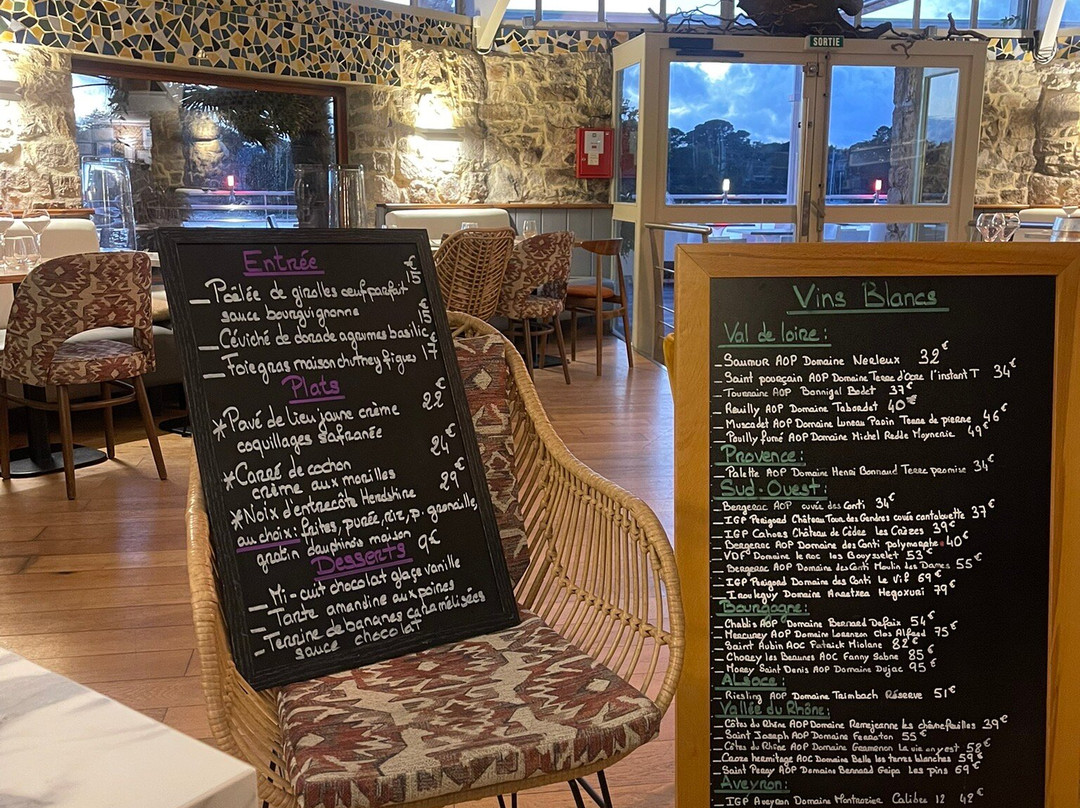 SORTIE
Entrée
Poêlée de girolles oeuf parfait 15€
sauce bourguignonne
Céviché de dorade agrumes basilic 15€
Foie gras maison chutney figues 17€
Plats
*Pavé de Lieu jaune crème 22€
coquillages safranée
*Carré de cochon 24€
crème aux morilles
*Noix d'entrecôte Herdshire 29€
au choix: frites, purée, riz, p. grenaille,
gratin dauphinois maison
Desserts 9€
_ Mi-cuit chocolat glace vanille
_ Tarte amandine aux poires
_ Terrine de bananes caramélisées
sauce chocolat
Vins Blancs
Val de loire:
_ Saumur AOP Domaine Nerleux 32€
_ Saint pourçain AOP Domaine Terre d'Ocre l'instant T 34€
_ Tourraine AOP Bannigal Bodet 37€
_ Reuilly AOP Domaine Tabordet 40€
_ Muscadet AOP Domaine Luneau Papin Terre de pierre 46€
_ Pouilly fumé AOP Domaine Michel Redde Moynerie 49€
Provence:
_ Palette AOP Domaine Henri Bonnaud Terre promise 34€
Sud-Ouest:
_ Bergerac AOP cuvée des Conti 34€
_ IGP Perigord Château Tour des Gendres cuvée contalouette 37€
_ IGP Cahors Château de Cèdre Les Cèdres 39€
_ Bergerac AOP Domaine des Conti polymorphe 40€
_ VDF Domaine le roc les Bouysselet 53€
_ Bergerac AOP Domaine des Conti Moulin des Dames 55€
_ IGP Perigord Domaine des Conti Le Vif 69€
_ Irouleguy Domaine Arretxea Hegoxuri 79€
Bourgogne:
_ Chablis AOP Domaine Bernard Defaix 54€
_ Mercurey AOP Domaine Lorenzon Clos 75€
_ Saint Aubin AOC Patrick Miolane 82€
_ Chorey les Beaunes AOC Fanny Sabre 85€
_ Morey Saint Denis AOP Domaine Dujac 95€
Alsace:
_ Riesling AOP Domaine Trimbach Réserve 51€
Vallée du Rhône:
_ Côtes du Rhône AOP Domaine Remejeanne les chèvrefeuilles 39€
_ Saint Joseph AOP Domaine Ferraton 55€
_ Côtes du Rhône AOP Domaine Gramenon La vie on y est 58€
_ Croze hermitage AOC Domaine Belle les terres blanches 59€
_ Saint Peray AOP Domaine Bernard Gripa Les pins 69€
Aveyron:
_ IGP Aveyron Domaine Montrozier Calibre 12 48€